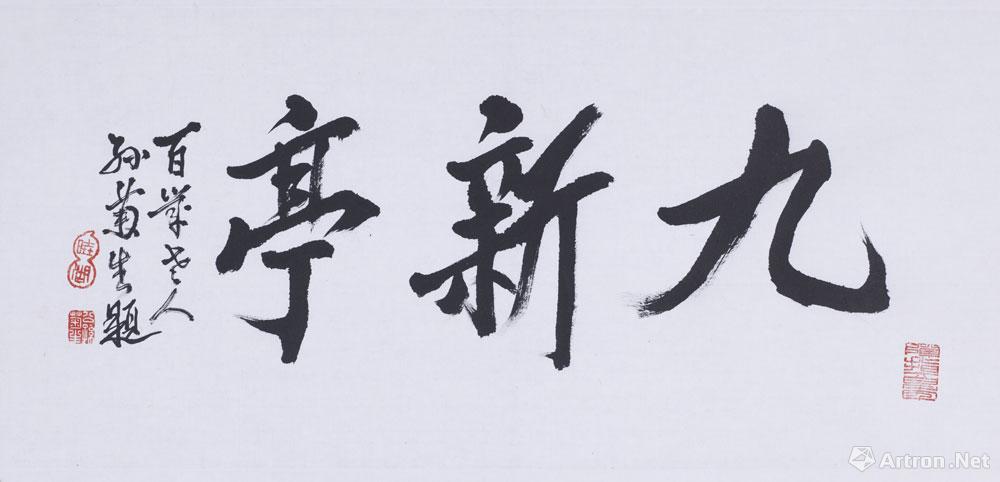 九新亭
百岁老人
孙菊生题
Artron.Net